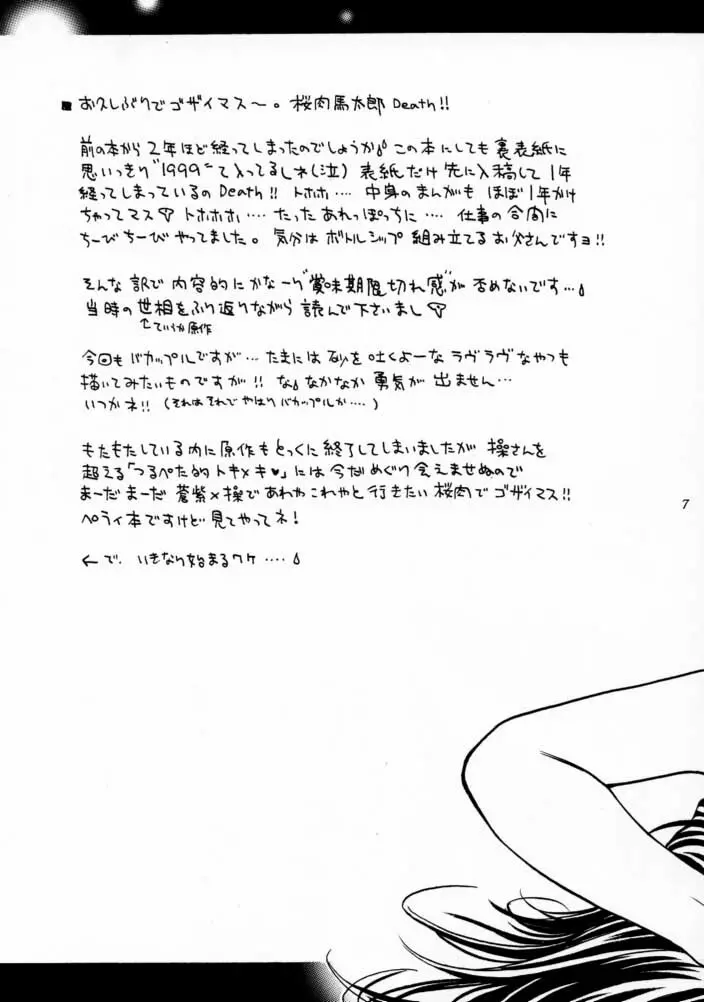 ■お久しぶりでゴザイマス〜。桜肉馬太郎Death!!
前の本から2年ほど経ってしまったのでしょうか この本にしても裏表紙に
思いっきり"1999"て入ってるしネ(泣)表紙だけ先に入稿して1年
経ってしまっているのDeath!! トホホ‥‥ 中身のまんがも ほぼ1年かけ
ちゃってマス トホホホ‥‥たったあれっぽっちに‥‥ 仕事の合間に
ちーびちーびやってました。気分はボトルシップ組み立てるお父さんですヨ!!
そんな訳で内容的にかなーり"賞味期限切れ感"が否めないです‥‥
当時の世相をふり返りながら読んで下さいまし
↑ていうか原作
今回もバカップルですが‥‥たまには砂を吐くよーなラヴラヴなやつも
描いてみたいものですが!! な、なかなか勇気が出ません‥‥
いつかネ!!(それはそれでやはりバカップルか‥‥)
もたもたしている内に原作もとっくに終了してしまいましたが 操さんを
超える「つるぺた的トキメキ♥」には今だめぐり会えませぬので
まーだまーだ蒼紫×操であれやこれやと行きたい桜肉でゴザイマス!!
ペライ本ですけど見てやってネ!
←で、いきなり始まるワケ‥‥
7